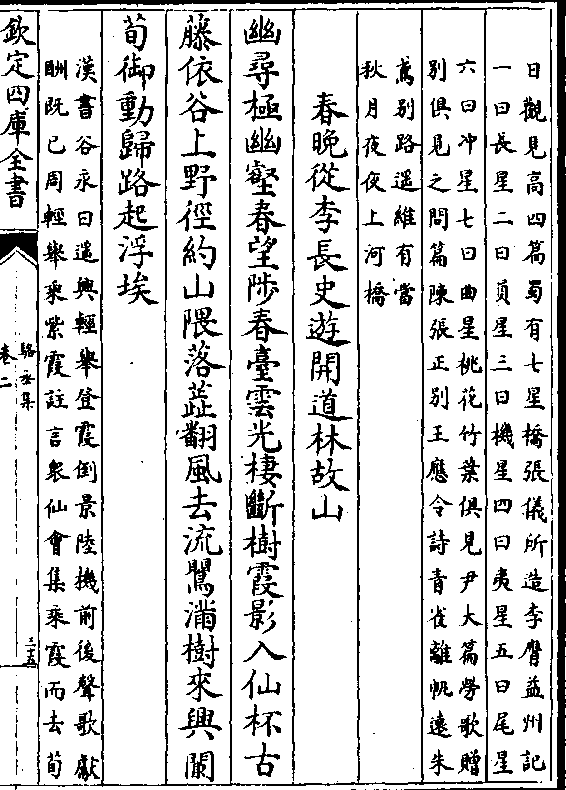 日觀見高四篇蜀有七星橋張儀所造李膺益州記
一曰長星二曰員星三曰機星四曰夷星五曰尾星
六曰冲星七曰曲星桃花竹葉俱見尹大篇勞歌贈
別俱見之問篇陳張正別王應令詩青雀離帆遠朱
鳶別路遥維有當
秋月夜夜上河橋
春晚從李長史遊開道林故山
幽尋極幽壑春望陟春臺雲光棲斷樹霞影入仙杯古
藤依谷上野徑約山隈落蕋翻風去流鶯滿樹來興闌
荀御動歸路起浮埃
漢書谷永曰遥興輕舉登霞倒景陸機前後聲歌獻
酬既已周輕舉乘紫霞註言衆仙會集乘霞而去荀
欽定四庫全書
駱丞集
卷二
三五